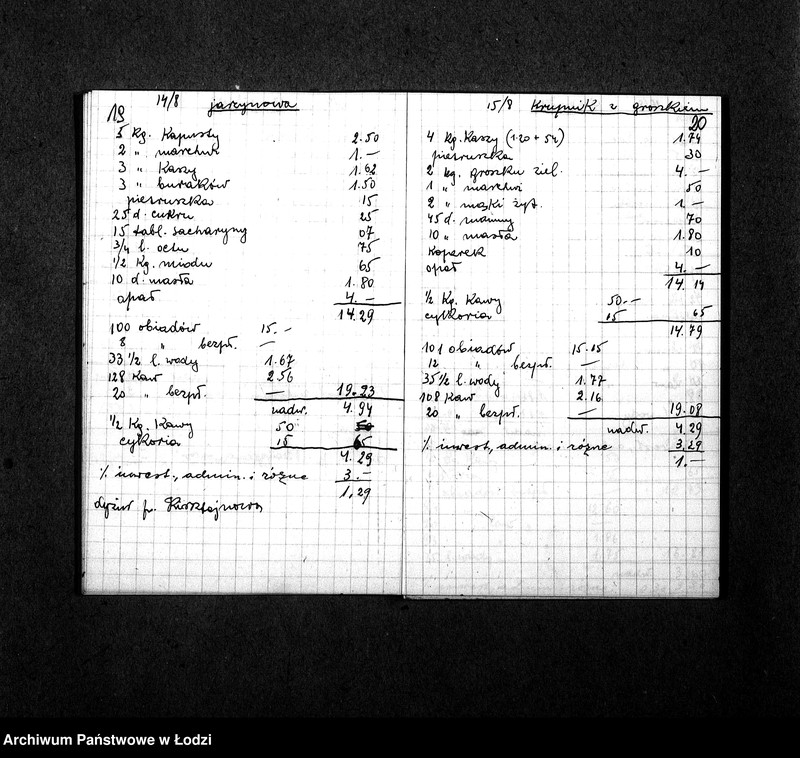 19
14/8 jarzynowa
5 kg. Kapusty 2.50
2 " marchwi 1.—
3 " Kaszy 1.62
3 " buraków 1.50
pietruszka 15
25 d. cukru 25
15 tabl. sacharyny 07
3/4 l. octu 75
1/2 Kg. miodu 65
10 d. masła 1.80
opał 4.—
14.29
100 obiadów 15.—
8 " bezpł. —
33 1/2 l. wody 1.67
128 Kaw 2.56
20 " bezpł. — 19.23
nadw. 4.94
1/2 Kg. Kawy 50
cykoria 15 65
4.29
% inwest., admin. i różne 3.—
1.29
dyżur p.
15/8 Krupnik z groszkiem
20
4 Kg. Kaszy (1.20 + 54) 1.74
pietruszka 30
2 kg. groszku ziel. 4.—
1 " marchwi 50
2 " mąki żyt. 1.—
45 d. manny 70
10 " masła 1.80
Koperek 10
opał 4.—
14.14
1/2 Kg. Kawy 50.—
cykoria 15 65
14.79
101 obiadów 15.15
12 " bezpł. —
35 1/2 l. wody 1.77
108 Kaw 2.16
20 " bezpł. — 19.08
nadw. 4.29
% inwest., admin. i różne 3.29
1.—
Archiwum Państwowe w Łodzi